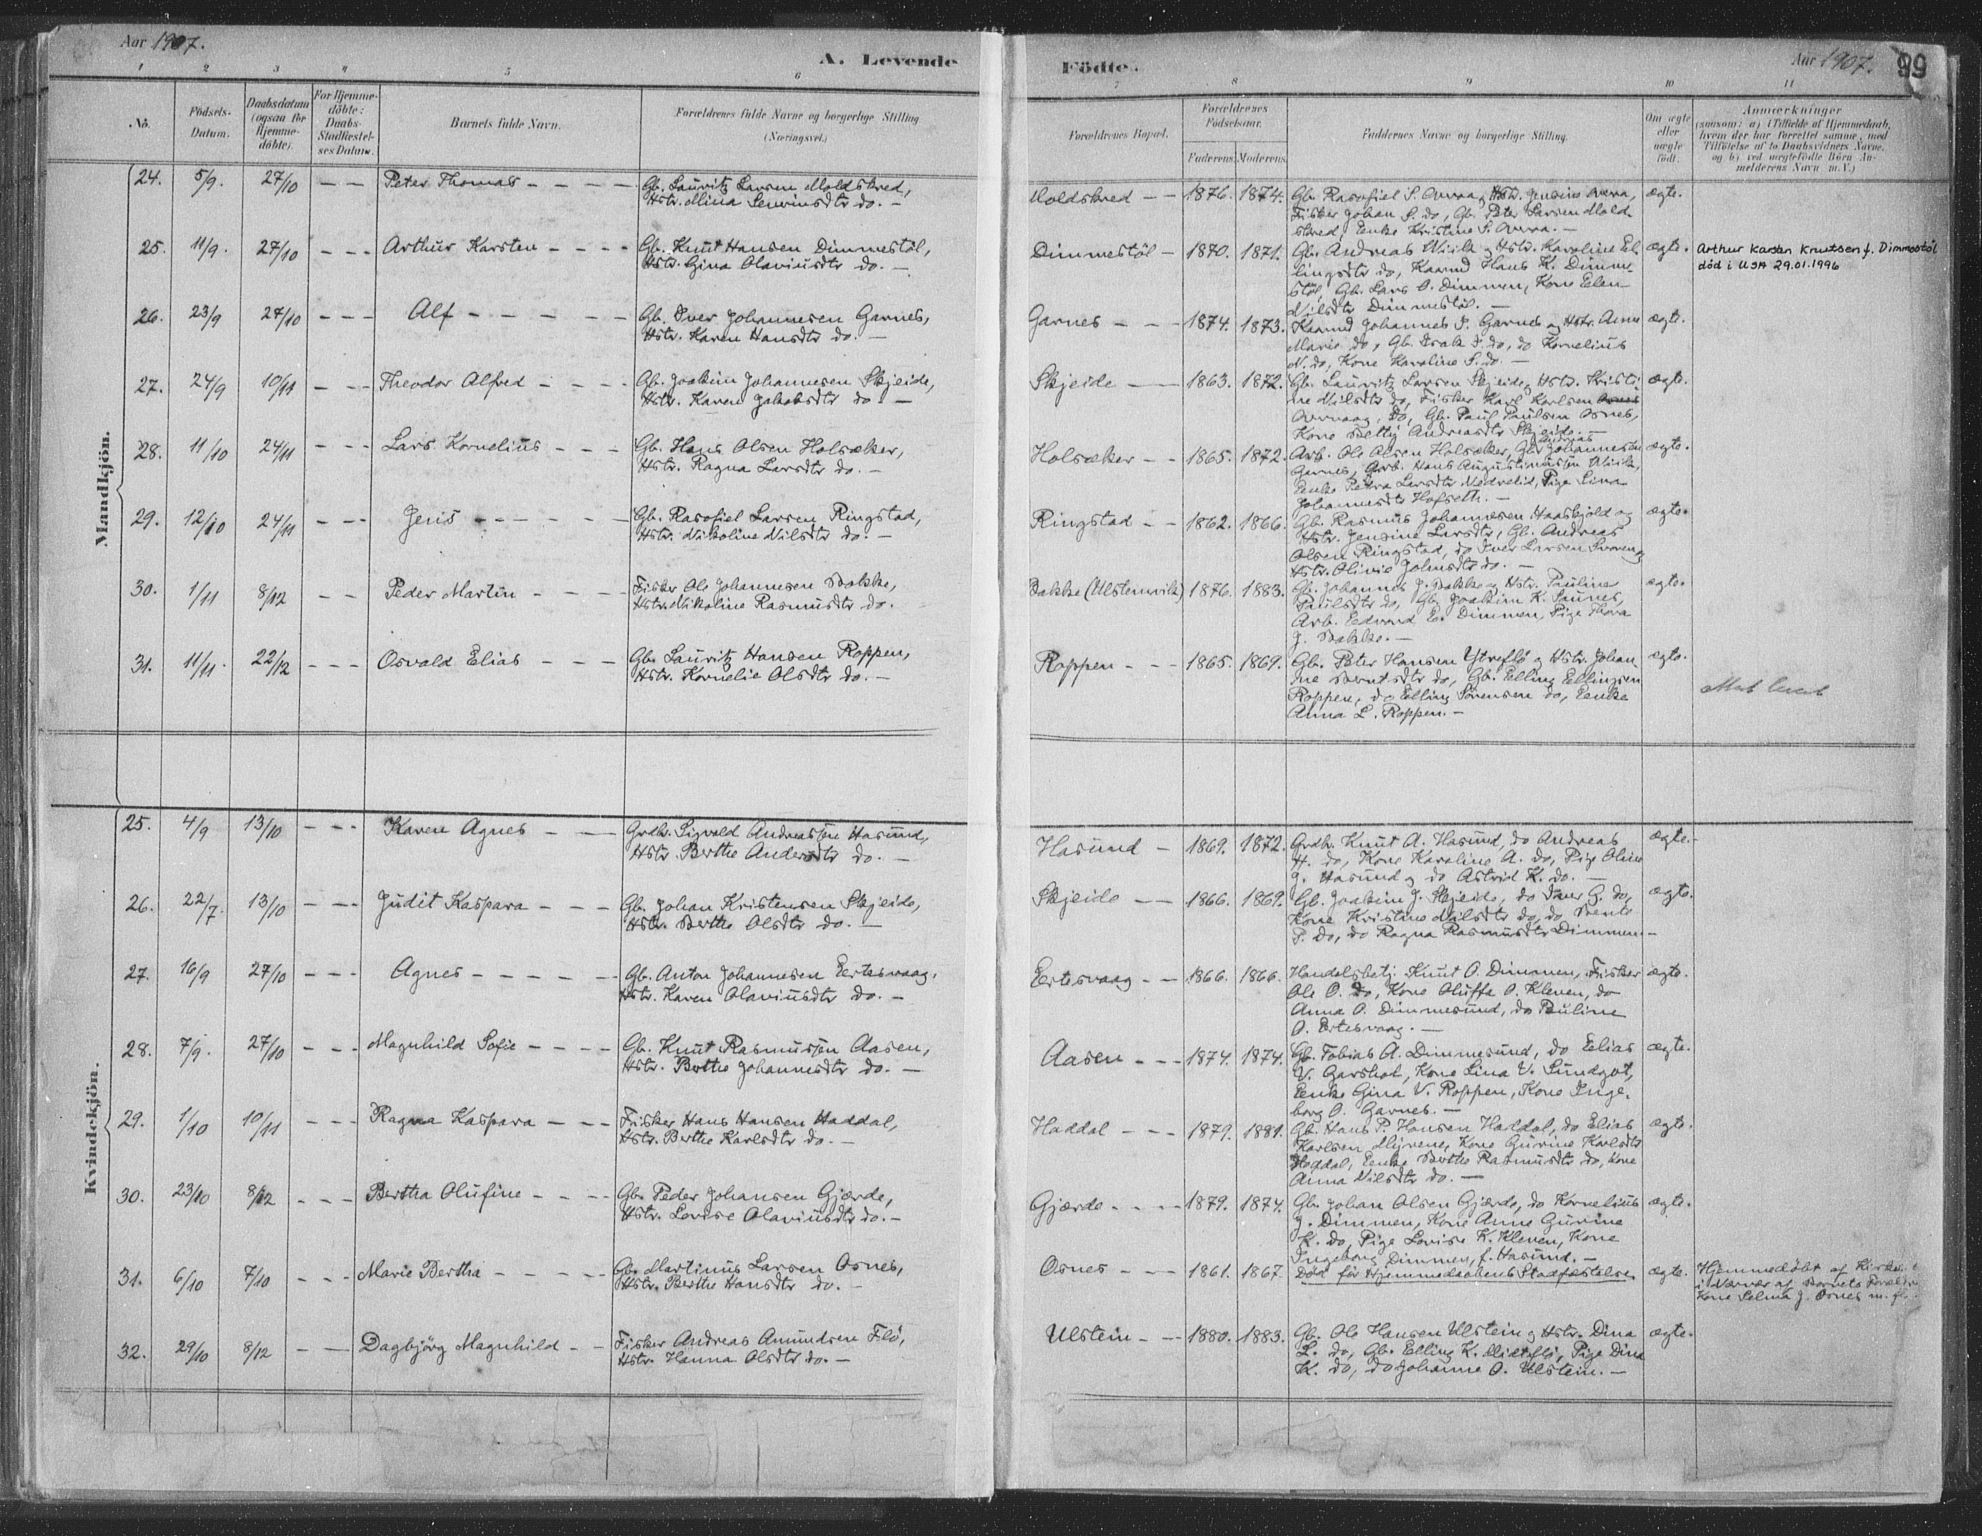 Aar 1907.
A. Levende
Födte.
Aar 1907.
99
1 2 3 4 5 6 7 8 9 10 11
No.
Födsels-Datum.
Daabsdatum (ogsaa for Hjemme-döbte).
For Hjemme-döbte: Daabs-Stadfæstel-ses Datum.
Barnets fulde Navn.
Forældrenes fulde Navne og borgerlige Stilling (Næringsvei.)
Forældrenes Bopæl.
Forældrenes Födselsaar.
Faderens. Moderens.
Faddernes Navne og borgerlige Stilling.
Om ægte eller uægte födt.
Anmærkninger
(saasom: a) i Tilfælde af Hjemmedaab,
hvem der har forrettet samme, med
Tilföielse af to Daabsvidners Navne,
og b) ved uægtefödte Börn An-
melderens Navn m. V.)
Mandkjön.
24. 5/9. 27/10 — — Peter Thomas — — — — Gb. Lauritz Larsen Moldskred,
Hstr. Mina Sevrinsdtr do. —
Moldskred — — 1876. 1874. Gb. Rasofiel S. Overaa, Hstr. Jensine Overaa, ægte.
Fisker Johan S. do, Gb. Peter Larsen Mold-
skred, Enke Kristine S. Overaa. —
25. 11/9. 27/10 — — — Arthur Karsten — — — — Gb. Knut Hansen Dimmestöl,
Hstr. Gina Olaviusdtr do. —
Dimmestöl — 1870. 1871. Gb. Andreas Wiik, Hstr. Karoline El- ægte. Arthur Karsten Knutsen f. Dimmestöl
lingsdtr do, Kaarmd Hans K. Dimme- död i USA 29.01.1996
stöl, Gb. Lars O. Dimmen, Kone Elen
Nilsdtr Dimmestöl. —
26. 23/9 27/10 — — — Alf — — — — — Gb. Iver Johannesen Garnes,
Hstr. Karen Hansdtr do. —
Garnes — — — 1874. 1873. Kaarmd Johannes I. Garnes og Hstr. Anne ægte.
Marie do, Gb. Isak I. do, do Kornelius
N. do, Kone Karoline S. do. —
27. 24/9 10/11 — — — Theodor Alfred — — — — Gb. Joakim Johannesen Skjeide,
Hstr. Karen Jakobsdtr do —
Skjeide — — 1863. 1872. Gb. Lauritz Larsen Skjeide, Hstr. Kristi- ægte.
ne Nilsdtr do, Fisker Karl Karlsen
Overaag, do, Gb. Paul Paulsen Osnes,
Kone Bettij Andreasdtr Skjeide. —
28. 11/10 24/11 — — — Lars Kornelius — — — Gb. Hans Olsen Holsæker,
Hstr. Ragna Larsdtr do. —
Holsæker — — 1865. 1872. Arb. Ole Olsen Holsæker, Gb. Andreas Johannesen ægte.
Garnes, Arb. Hans Augustinussen Wiik,
Enke Petra Larsdtr Nedrelid, Pige Lina
Johannesdtr Hofseth. —
29. 12/10 24/11 — — — Jens — — — — — Gb. Rasofiel Larsen Ringstad,
Hstr. Nikoline Nilsdtr do. —
Ringstad — — 1862. 1866. Gb. Rasmus Johannesen Haaskjold og ægte.
Hstr. Jensine Larsdtr, Gb. Andreas
Olsen Ringstad, do Iver Larsen Svoren,
Hstr. Olivie Johnsdtr do. —
30. 1/11 8/12 — — Peder Martin — — — — Fisker Ole Johannesen Bakke,
Hstr. Nikoline Rasmusdtr do.
Bakke (Ulstenvik) 1876. 1883. Gb. Johannes J. Bakke, Hstr. Pauline ægte.
Paulsdtr do, Gb. Joakim K. Saunes,
Arb. Edvard E. Dimmen, Pige Thora
J. Bakke. —
31. 11/11. 22/12 — — — Osvald Elias — — — Gb. Lauritz Hansen Roppen,
Hstr. Kornelie Olsdtr do. —
Roppen — — — 1865. 1869. Gb. Peter Hansen Ytreflö og Hstr. Johan- ægte.
ne Berntsdtr do, Gb. Elling Ellingsen
Roppen, do Elling Sörensen do, Enke
Anna L. Roppen. —
Kvindekjön.
25. 4/9 13/10 — — — Karen Agnes — — — Grdb. Sigvald Andreassen Hasund,
Hstr. Berthe Andersdtr do. —
Hasund — 1869. 1872. Grdb. Knut A. Hasund, do Andreas ægte.
H. do, Kone Karoline A. do, Pige Oline
J. Hasund og do Astrid K. do. —
26. 22/7. 13/10 — — — Judit Kaspara — — — Gb. Johan Kristensen Skjeide,
Hstr. Berthe Olsdtr do. —
Skjeide — — 1866. 1869. Gb. Joakim J. Skjeide, do Iver G. do, ægte.
Kone Kristine Nilsdtr do, do Bente
P. do, do Ragna Rasmusdtr Dimmen —
27. 16/9 27/10 — — — Agnes — — — — Gb. Anton Johannesen Eertesvaag,
Hstr. Karen Olaviusdtr do. —
Eertesvaag — — 1866. 1866. Handelsbetj. Knut O. Dimmen, Fisker ægte.
Ole O. do, Kone Oluffa O. Kleven, do
Anna O. Dimmesund, do Pauline
O. Ertesvaag. —
28. 7/9. 27/10 — — — Magnhild Sofie — — — — Gb. Knut Rasmussen Aasen,
Hstr. Berthe Johannesdtr do. —
Aasen — — — 1874. 1874. Gb. Tobias A. Dimmesund, do Elias ægte.
V. Garshol, Kone Lina V. Sundgot,
Enke Gina V. Roppen, Kone Inge-
borg O. Garnes. —
29. 1/10 10/11 — — — Ragna Kaspara — — — Fisker Hans Hansen Haddal,
Hstr. Berthe Karlsdtr do. —
Haddal — — — 1879. 1881. Gb. Hans P. Hansen Haddal, do Elias ægte.
Karlsen Myrene, Kone Gurine Karlsdtr
Haddal, Enke Berthe Rasmusdtr do, Kone
Anna Nilsdtr do. —
30. 23/10 8/12 — — — Bertha Olufine — — — — Gb. Peder Johansen Gjærde,
Hstr. Lovise Olaviusdtr do. —
Gjærde — — — 1879. 1874. Gb. Johan Olsen Gjærde, do Kornelius ægte.
J. Dimmen, Kone Anne Gurine
K. do, Pige Lovise K. Kleven, Kone
Ingeborg Dimmen, f. Hasund. —
31. 6/10 7/10 — — — Marie Bertha — — — — Gb. Martinus Larsen Osnes,
Hstr. Berthe Hansdtr do. —
Osnes — — — 1861. 1867. Död för Hjemmedaabens Stadfæstelse ægte. Hjemmedöbt af
i Nærvær af Barnets Forældre,
Kone Selma J. Osnes m. fl.
32. 29/10 8/12 — — Dagbjörg Magnhild — — Fisker Andreas Amundsen Flö,
Hstr. Hanna Olsdtr do. —
Ulstein — — 1880. 1883. Gb. Ole Hansen Ulstein, Hstr. Dina ægte.
L. do, Gb. Elling K. Midtflö, Pige Dina
K. do, do Johanne O. Ulstein. —